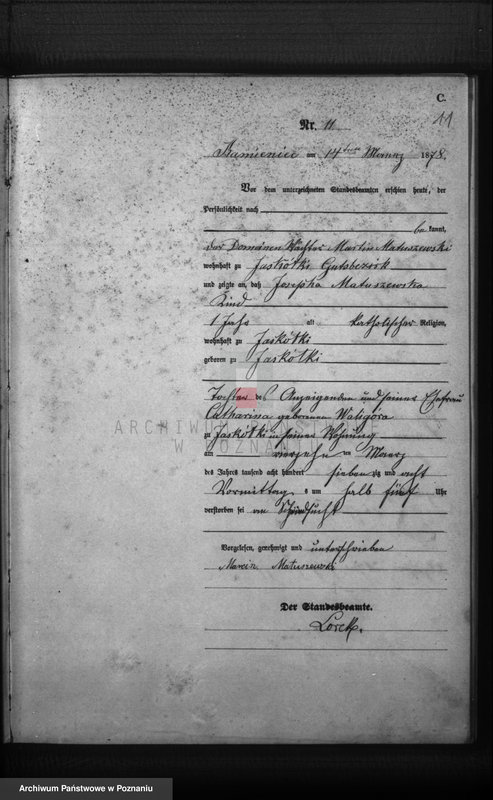 C.
11
Nr. 11
Kamieniec am 14ten Maerz 1878.
Vor dem unterzeichneten Standesbeamten erschien heute, der
Persönlichkeit nach
be kannt,
der Domänen Wächter Martin Matuszewski
wohnhaft zu Jaskółki Gutsbezirk
und zeigte an, daß Josepha Matuszewska
Kind
1 Jahr alt katholischer Religion,
wohnhaft zu Jaskółki
geboren zu Jaskółki
Tochter des Anzeigenden und seiner Ehefrau
Catharina geborenen Waligóra
ARCHIWUM PAŃSTWOWE
W POZNANIU
zu Jaskółki in seiner Wohnung
am vierzehn ten Maerz
des Jahres tausend acht hundert sieben zig und acht
Vormittag s um halb fünf Uhr
verstorben sei an Schwindsucht
Vorgelesen, genehmigt und unterschrieben
Marcin Matuszewski
Der Standesbeamte.
Lorck.
Archiwum Państwowe w Poznaniu